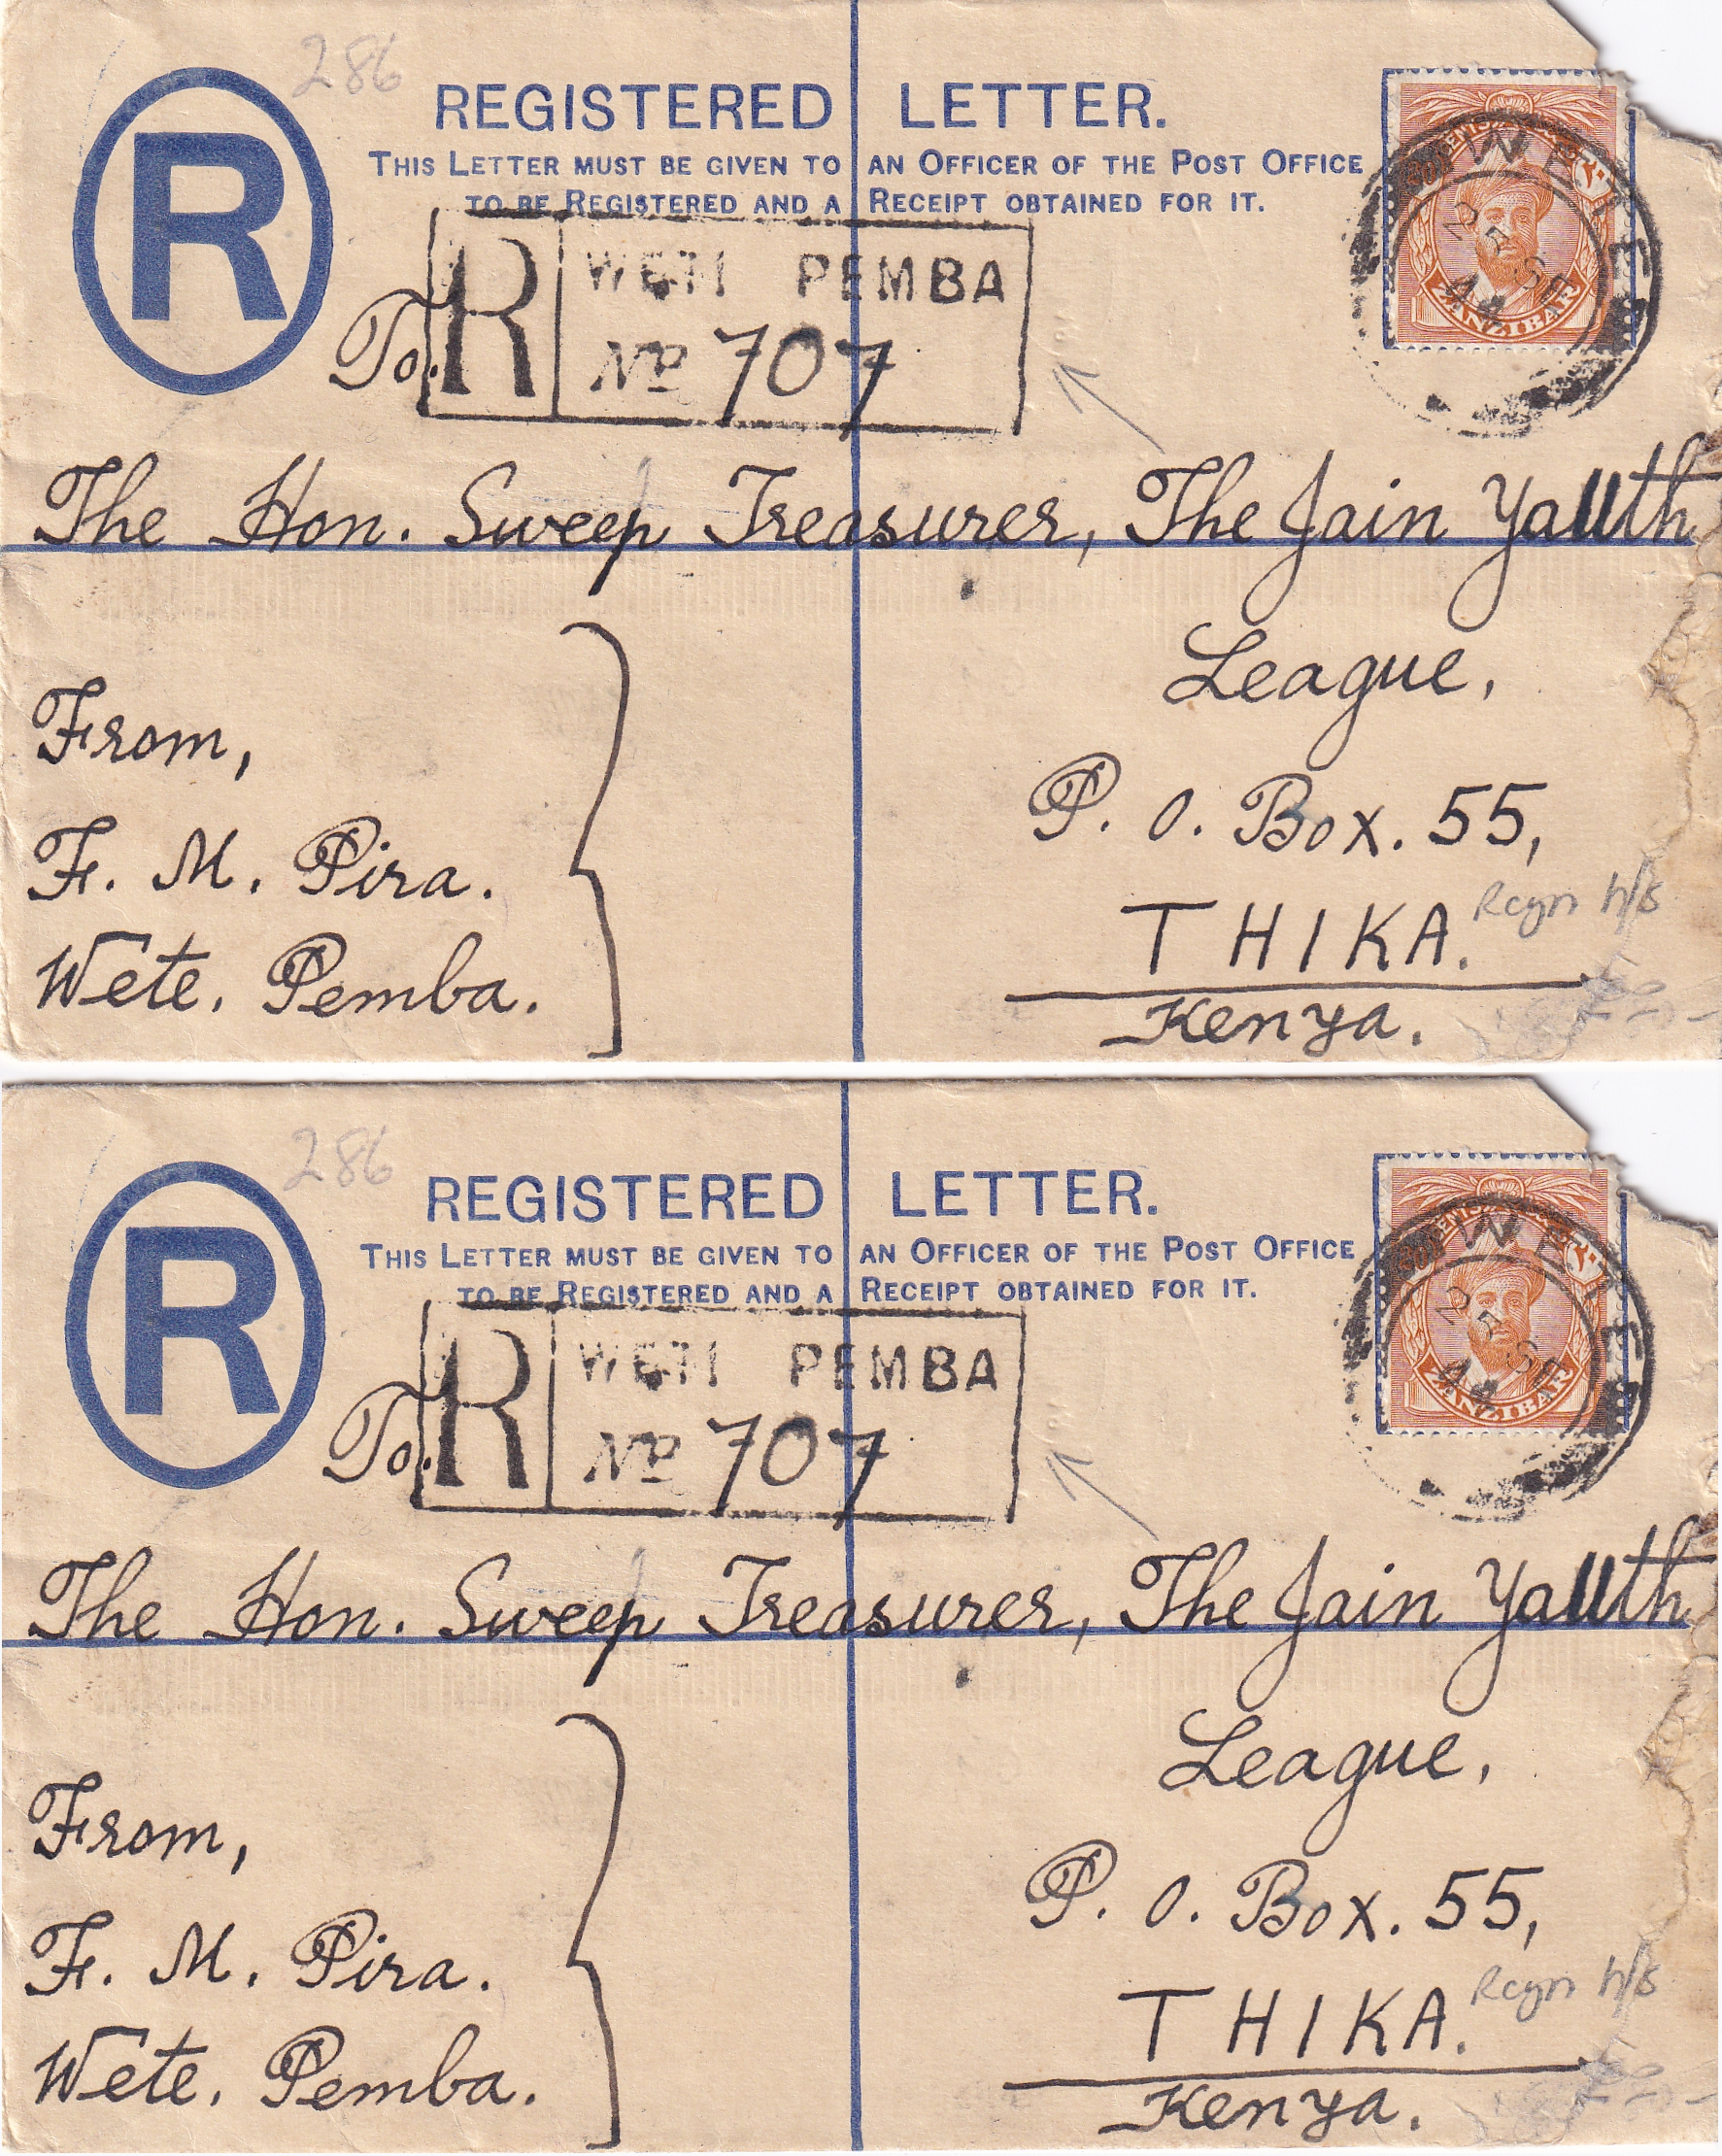 286
R
REGISTERED LETTER.
THIS LETTER MUST BE GIVEN TO AN OFFICER OF THE POST OFFICE
TO BE REGISTERED AND A RECEIPT OBTAINED FOR IT.
ZANZIBAR
WETE
25 SE
44
To.
R
WETI PEMBA
No 707
The Hon. Sweep Treasurer, The Jain Yauth
League,
P. O. Box. 55,
THIKA.
Kenya.
Regn h/s
From,
F. M. Pira.
Wete. Pemba.
286
R
REGISTERED LETTER.
THIS LETTER MUST BE GIVEN TO AN OFFICER OF THE POST OFFICE
TO BE REGISTERED AND A RECEIPT OBTAINED FOR IT.
ZANZIBAR
WETE
25 SE
44
To.
R
WETI PEMBA
No 707
The Hon. Sweep Treasurer, The Jain Yauth
League,
P. O. Box. 55,
THIKA.
Kenya.
Regn h/s
From,
F. M. Pira.
Wete. Pemba.